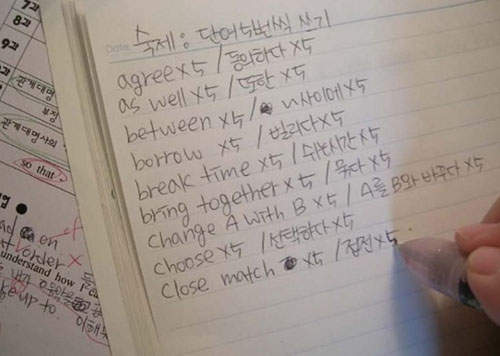 Date
숙제: 단어 5번씩 쓰기
agree×5 / 동의하다 ×5
as well ×5 / 또한 ×5
between ×5 / ~사이에 ×5
borrow ×5 / 빌리다 ×5
break time ×5 / 쉬는시간 ×5
bring together ×5 / 묶다 ×5
change A with B ×5 / A를 B와 바꾸다 ×5
choose ×5 / 선택하다 ×5
close match ×5 / 접전 ×5
7과
8과
9과
관계대명
보정
관계대명사의
so that
en
order ×
understand how I